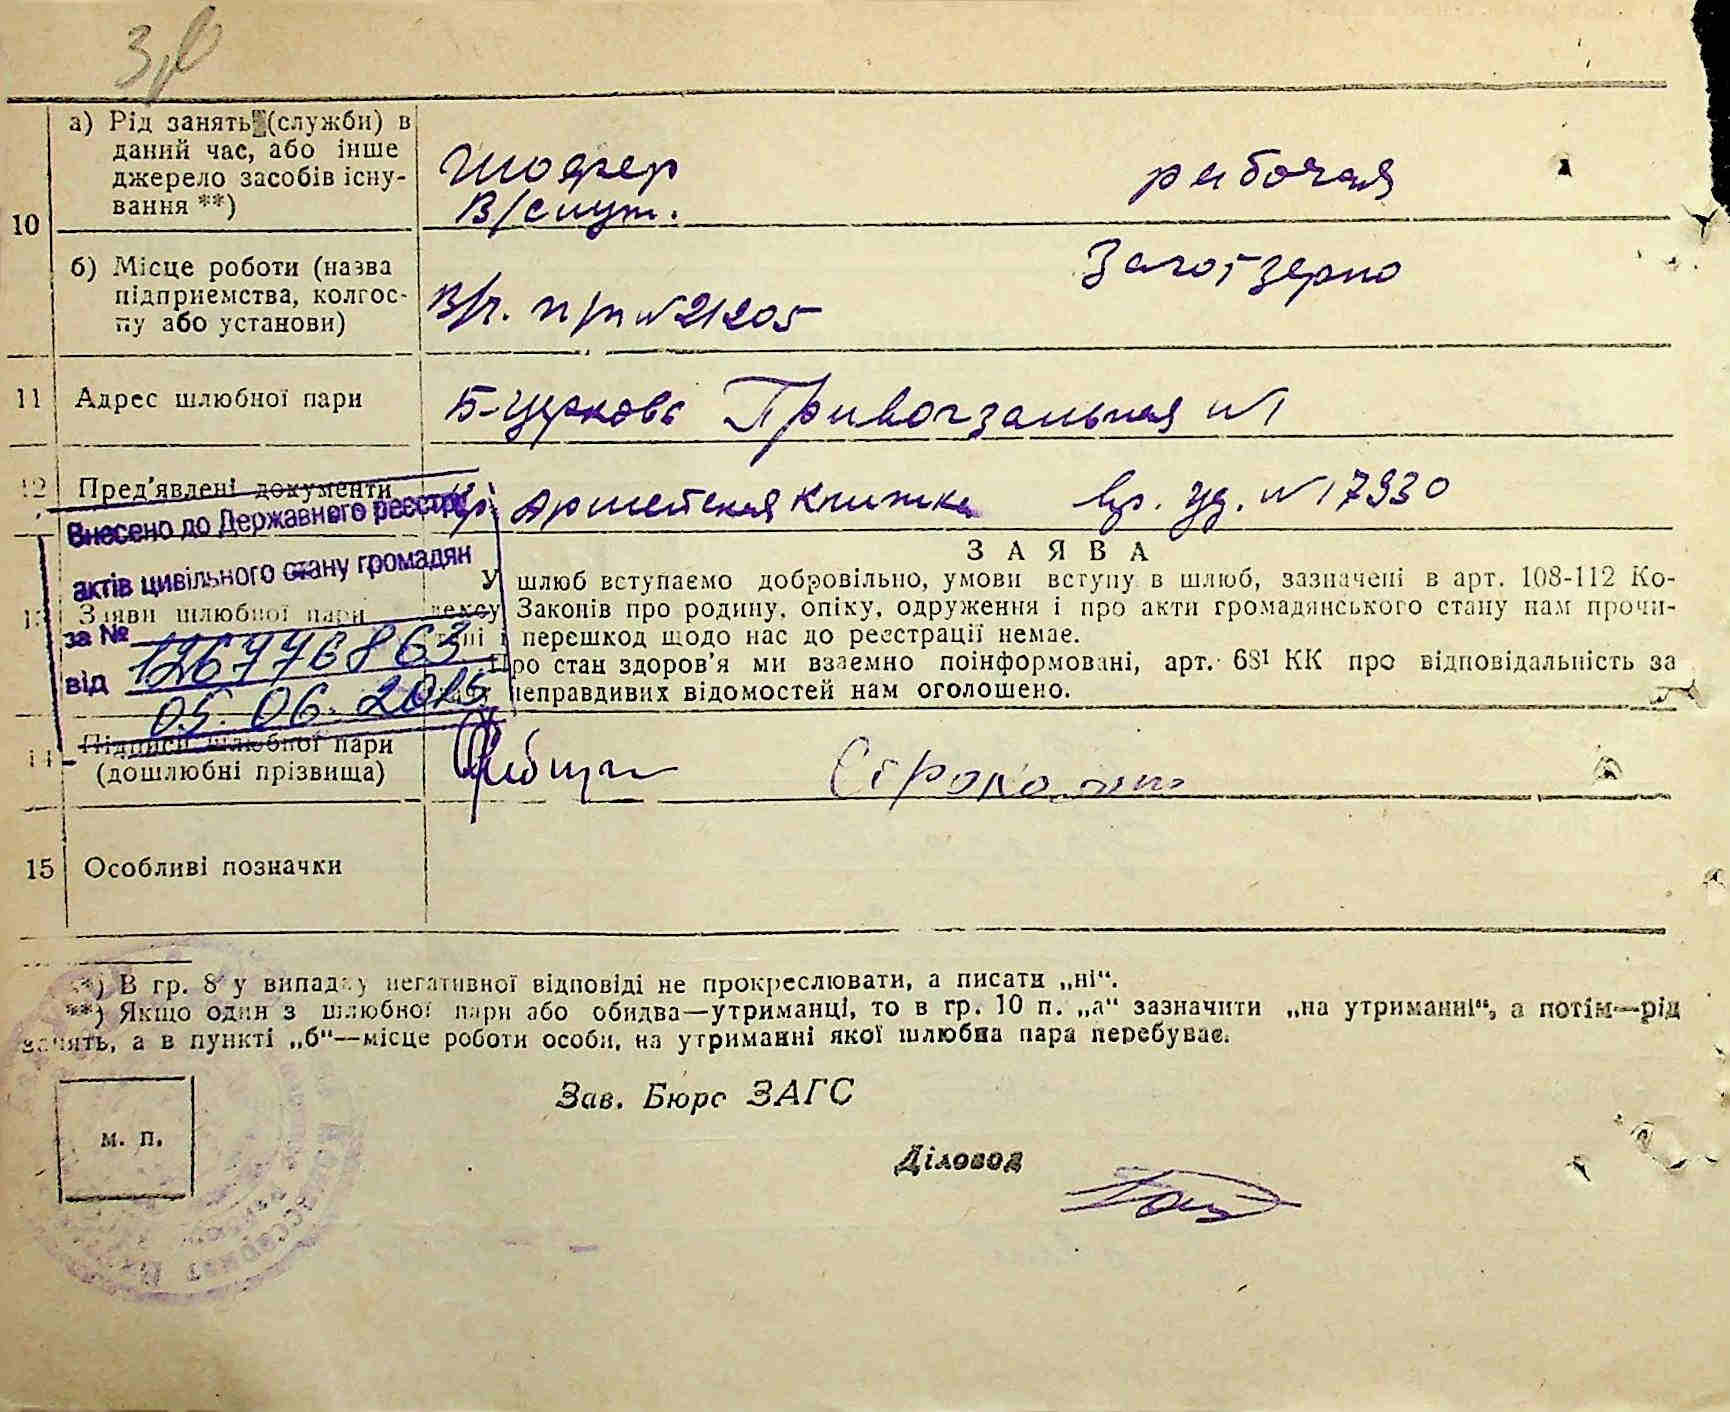 а) Рід занять (служби) в
даний час, або інше
джерело засобів існу-
вання **)
Шофер
В/служ.
рабочая
10
б) Місце роботи (назва
підприємства, колгос-
пу або установи)
В/ч. п/п №21205
Заготзерно
11
Адрес шлюбної пари
Б-Церковь Привокзальная №1
12
Пред'явлені документи
Кр. Армейская книжка вр. уд. №17930
Внесено до Державного реєстру
актів цивільного стану громадян
за № 1267776863
від 05.06.2015
13
Заяви шлюбної пари
ЗАЯВА
У шлюб вступаємо добровільно, умови вступу в шлюб, зазначені в арт. 108-112 Ко-
дексу Законів про родину, опіку, одруження і про акти громадянського стану нам прочи-
тані і перешкод щодо нас до реєстрації немає.
Про стан здоров'я ми взаємно поінформовані, арт. 68¹ КК про відповідальність за
неправдивих відомостей нам оголошено.
14
Підписи шлюбної пари
(дошлюбні прізвища)
15
Особливі позначки
*) В гр. 8 у випадку негативної відповіді не прокреслювати, а писати „ні“.
**) Якщо один з шлюбної пари або обидва—утриманці, то в гр. 10 п. „а“ зазначити „на утриманні“, а потім—рід
занять, а в пункті „б“—місце роботи особи, на утриманні якої шлюбна пара перебуває.
Зав. Бюро ЗАГС
м. п.
Діловод